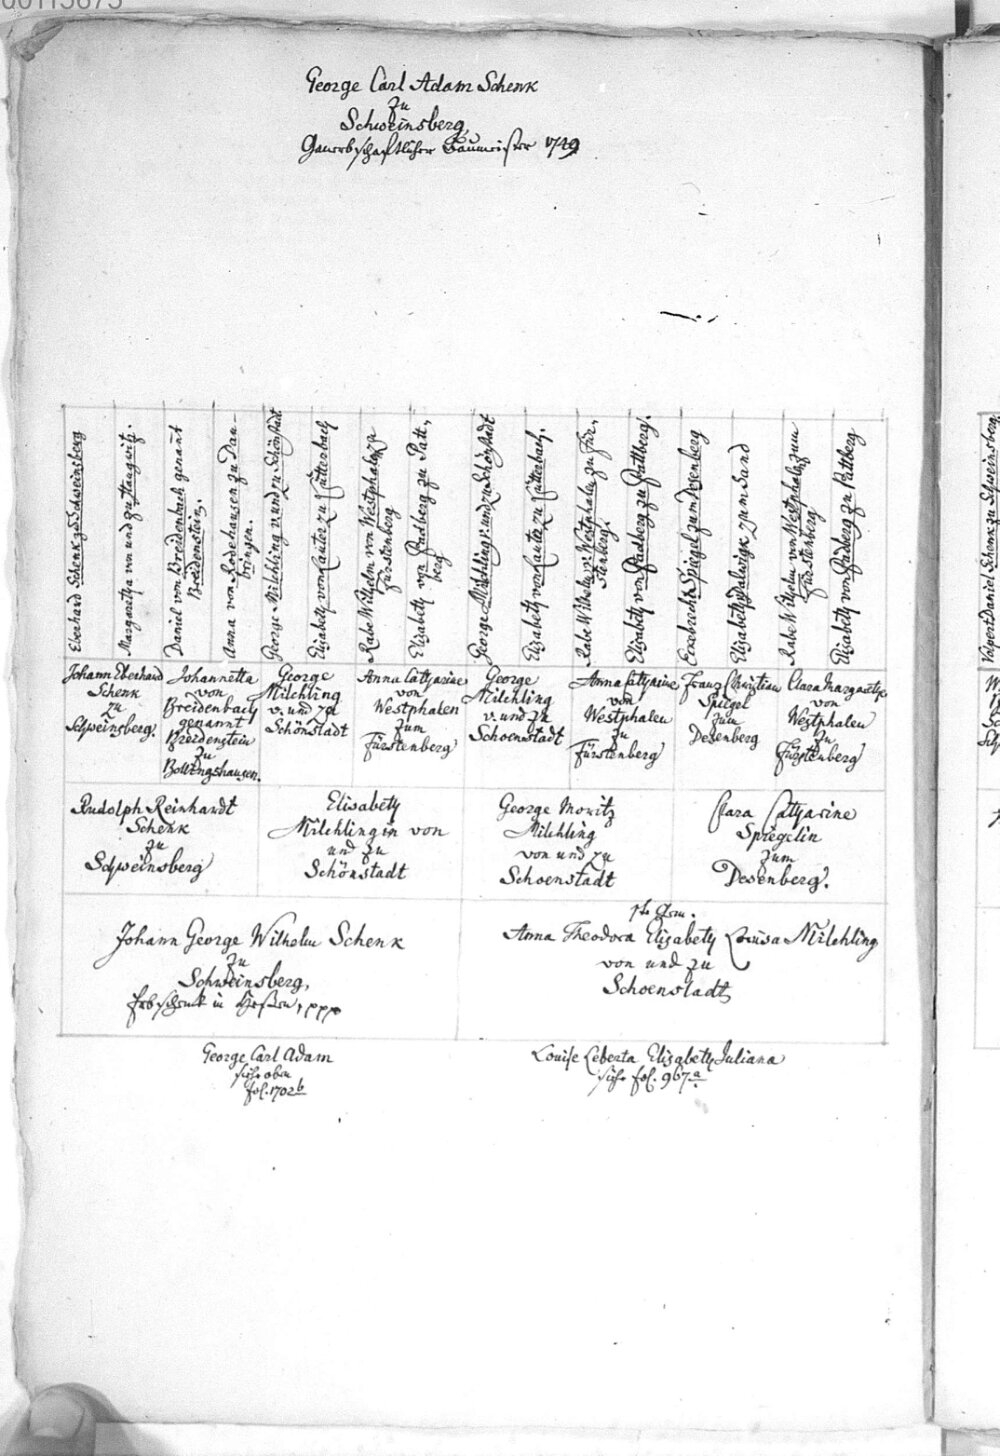 00115673
George Carl Adam Schenk
zu
Schweinsberg,
Ganerbschaftlicher Baumeister 1749
Eberhard Schenk zu Schweinsberg
Margaretha von und zu Haugwitz.
Daniel von Breidenbach genant
Breidenstein.
Anna von Rodehausen zu Dan-
bringen.
George Milchling v. und zu Schönstadt
Elisabeth von Lauter zu Lütterbach
Rabe Wilhelm von Westphalen zu
Fürstenberg
Elisabeth von Padberg zu Patt,
berg
George Milchling v. und zu Schönstadt
Elisabeth von Lauter zu Lütterbach.
Rabe Wilhelm v. Westphalen zu Für,
stenberg.
Elisabeth von Padberg zu Pattberg.
Eckebrecht Spiegel zum Desenberg
Elisabeth Dalwigk zum Sand
Rabe Wilhelm von Westphalen zum
Fürstenberg
Elisabeth von Padberg zu Pattberg
Johann Eberhard
Schenk
zu
Schweinsberg.
Johannetta
von
Breidenbach
genannt
Breidenstein
zu
Bottengshausen.
George
Milchling
v. und zu
Schönstadt
Anna Catharine
von
Westphalen
zum
Fürstenberg
George
Milchling
v. und zu
Schoenstadt
Anna Catharine
von
Westphalen
zu
Fürstenberg
Franz Christian
Spiegel
zum
Desenberg
Clara Margaretha
von
Westphalen
zu
Fürstenberg
Rudolph Reinhardt
Schenk
zu
Schweinsberg
Elisabeth
Milchlingin von
und zu
Schönstadt
George Moritz
Milchling
von und zu
Schoenstadt
Clara Catharine
Spiegelin
zum
Desenberg.
Johann George Wilhelm Schenk
zu
Schweinsberg,
Erbschenk in Hessen, ppp
1te Gem.
Anna Theodora Elisabeth Lovisa Milchling
von und zu
Schoenstadt
George Carl Adam
siehe oben
fol. 1702b
Louise Leberta Elisabeth Juliana
siehe fol. 967a
Volpert Daniel Schenk zu Schweinsberg